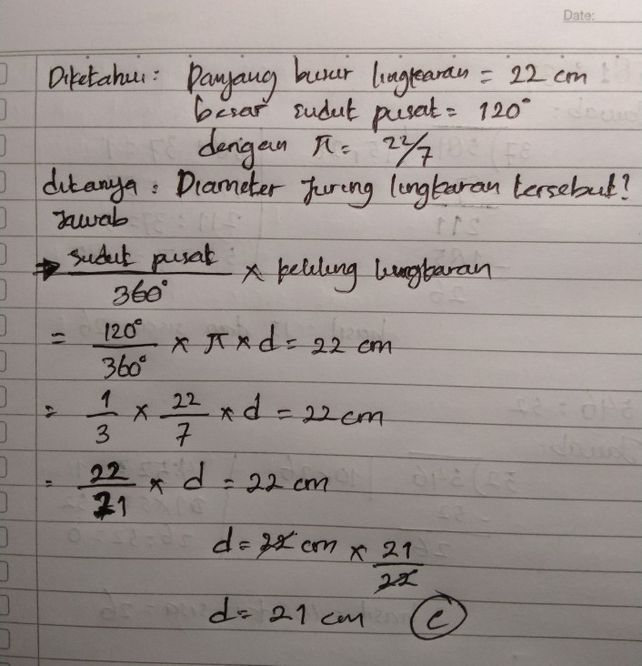 Date:
Diketahui: Panjang busur lingkaran = 22 cm
besar sudut pusat = 120°
dengan π = 22/7
ditanya: Diameter juring lingkaran tersebut?
Jawab
→ sudut pusat / 360° × keliling lingkaran
= 120° / 360° × π × d = 22 cm
= 1/3 × 22/7 × d = 22 cm
= 22/21 × d = 22 cm
d = 22 cm × 21/22
d = 21 cm (C)